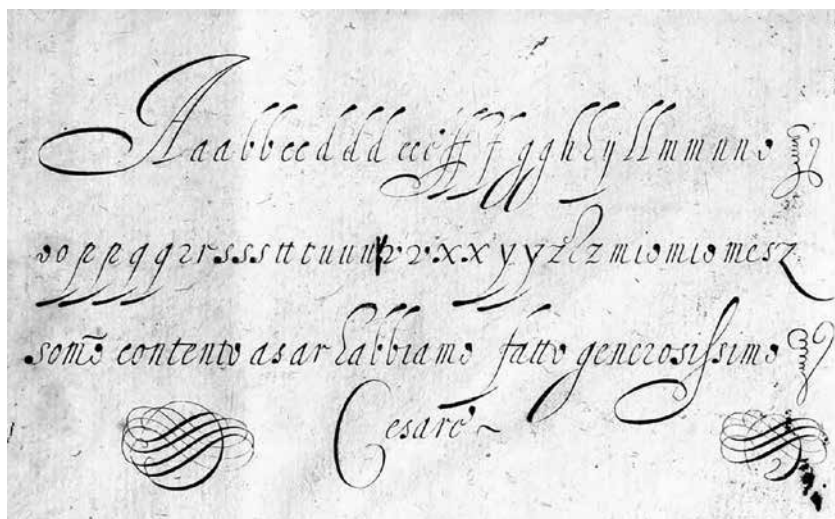 A a a b b c c d d d e e e ff f f g g h h y ll m m n n o
o o p p q q r r s s s tt t u u n v v x x y y z z z mio mio mesz
somō contento asar habbiamo fatto generosissimo
Cesare